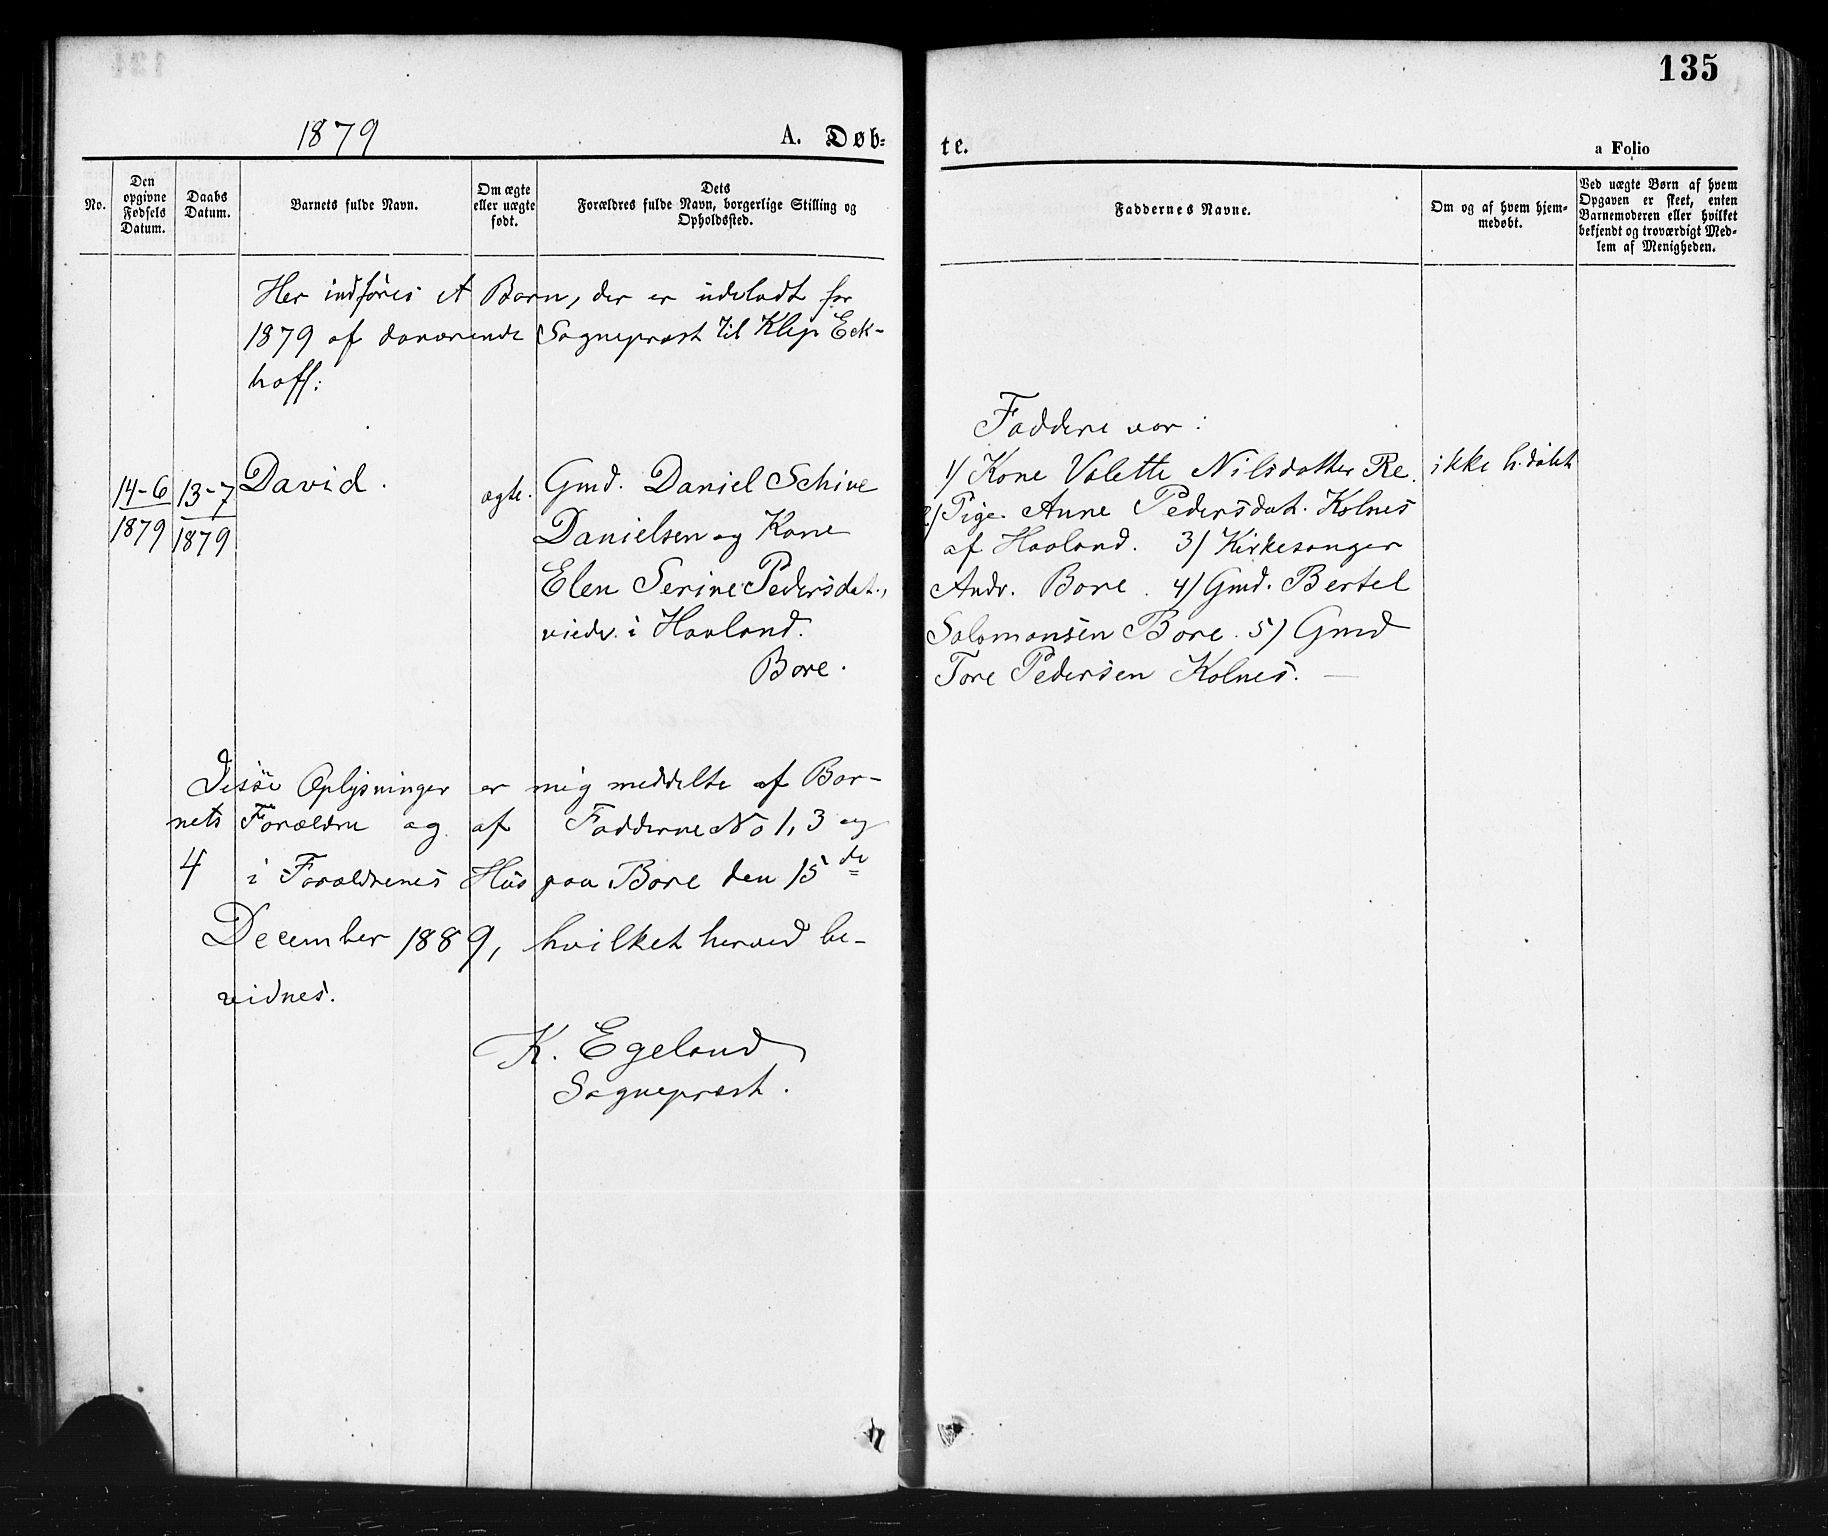 135
1879
A. Døb-
te.
a Folio
No.
Den
opgivne
Fødsels
Datum.
Daabs
Datum.
Barnets fulde Navn.
Om ægte
eller uægte
født.
Dets
Forældres fulde Navn, borgerlige Stilling og
Opholdssted.
Faddernes Navne.
Om og af hvem hjem-
medøbt.
Ved uægte Børn af hvem
Opgaven er skeet, enten
Barnemoderen eller hvilket
bekjendt og troværdigt Med-
lem af Menigheden.
Her indføres et Barn, der er udeladt for
1879 af daværende Sogneprest til Klep Eck-
hoff:
14-6
1879
13-7
1879
David.
ægte.
Gmd. Daniel Schive
Danielsen og Kone
Elen Serine Pedersdat.,
viede i Haaland.
Bore.
Faddere var:
1/ Kone Valette Nilsdatter Re.
2/ Pige Anne Pedersdat. Kolnes
af Haaland. 3/ Kirkesanger
Andr. Bore. 4/ Gmd. Bertel
Salomonsen Bore. 5/ Gmd
Tore Pedersen Kolnes. —
ikke h.døbt
Disse Oplysninger er mig meddelte af Bar-
nets Forældre og af Fadderne No 1, 3 og
4 i Forældrenes Hus paa Bore den 15de
December 1889, hvilket herved be-
vidnes.
K. Egeland
Sogneprest.